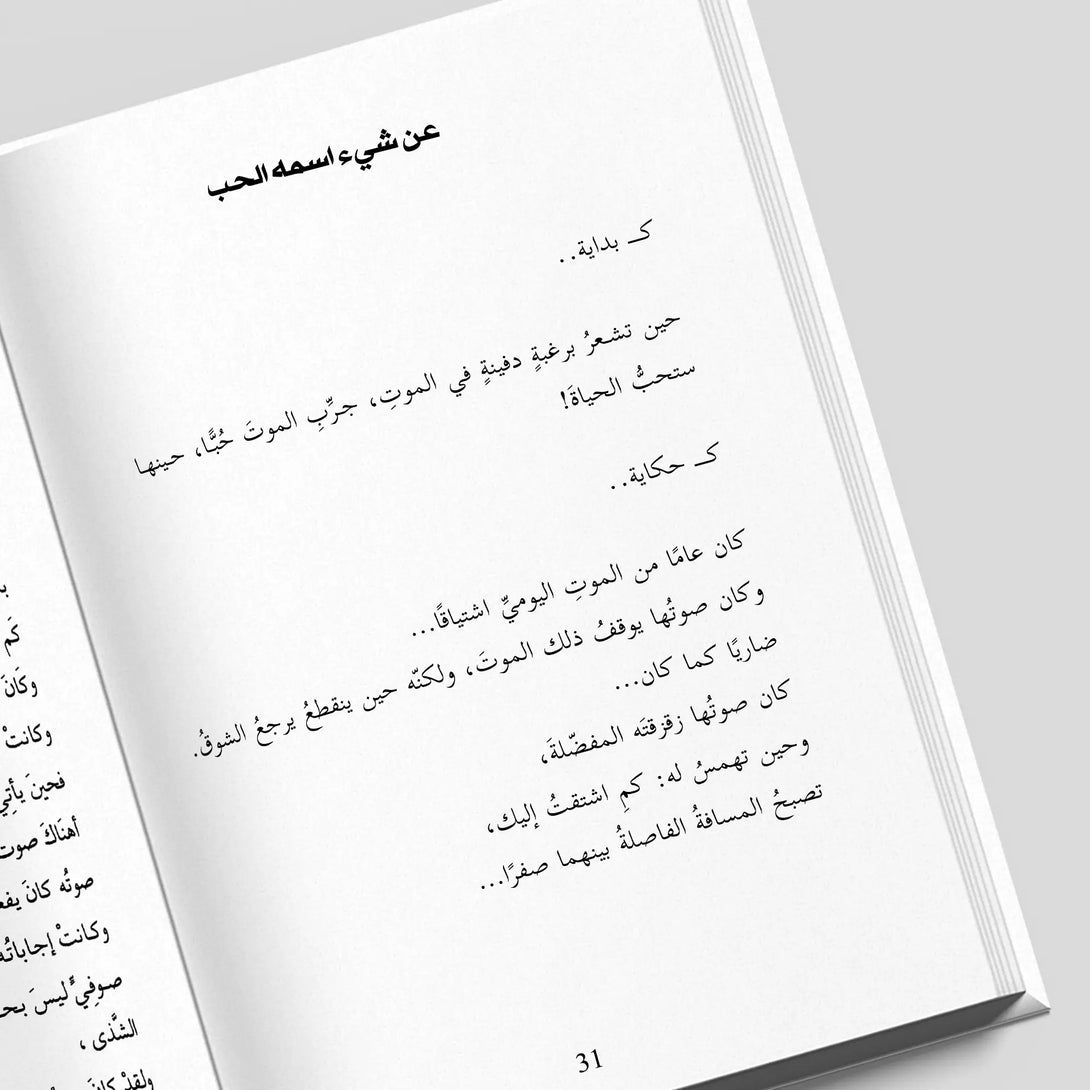 عن شيء اسمه الحب
كـ بداية..
حين تشعرُ برغبةٍ دفينةٍ في الموتِ، جرِّبِ الموتَ حُبًّا، حينها
ستحبُّ الحياةَ!
كـ حكاية..
كان عامًا من الموتِ اليوميِّ اشتياقًا...
وكان صوتُها يوقفُ ذلك الموتَ، ولكنّه حين ينقطعُ يرجعُ الشوقُ.
ضاريًا كما كان...
كان صوتُها زقزقتَه المفضّلةَ،
وحين تهمسُ له: كمِ اشتقتُ إليك،
تصبحُ المسافةُ الفاصلةُ بينهما صفرًا...
31
كَم
وكَانَ
وكانتْ
فحينَ يأتِي
أهنَاكَ صوت
صوتُه كانَ
وكانتْ إجاباتُه
صوفِيٌّ ليسَ
الشَّذى ،
ولقدْ كانَ